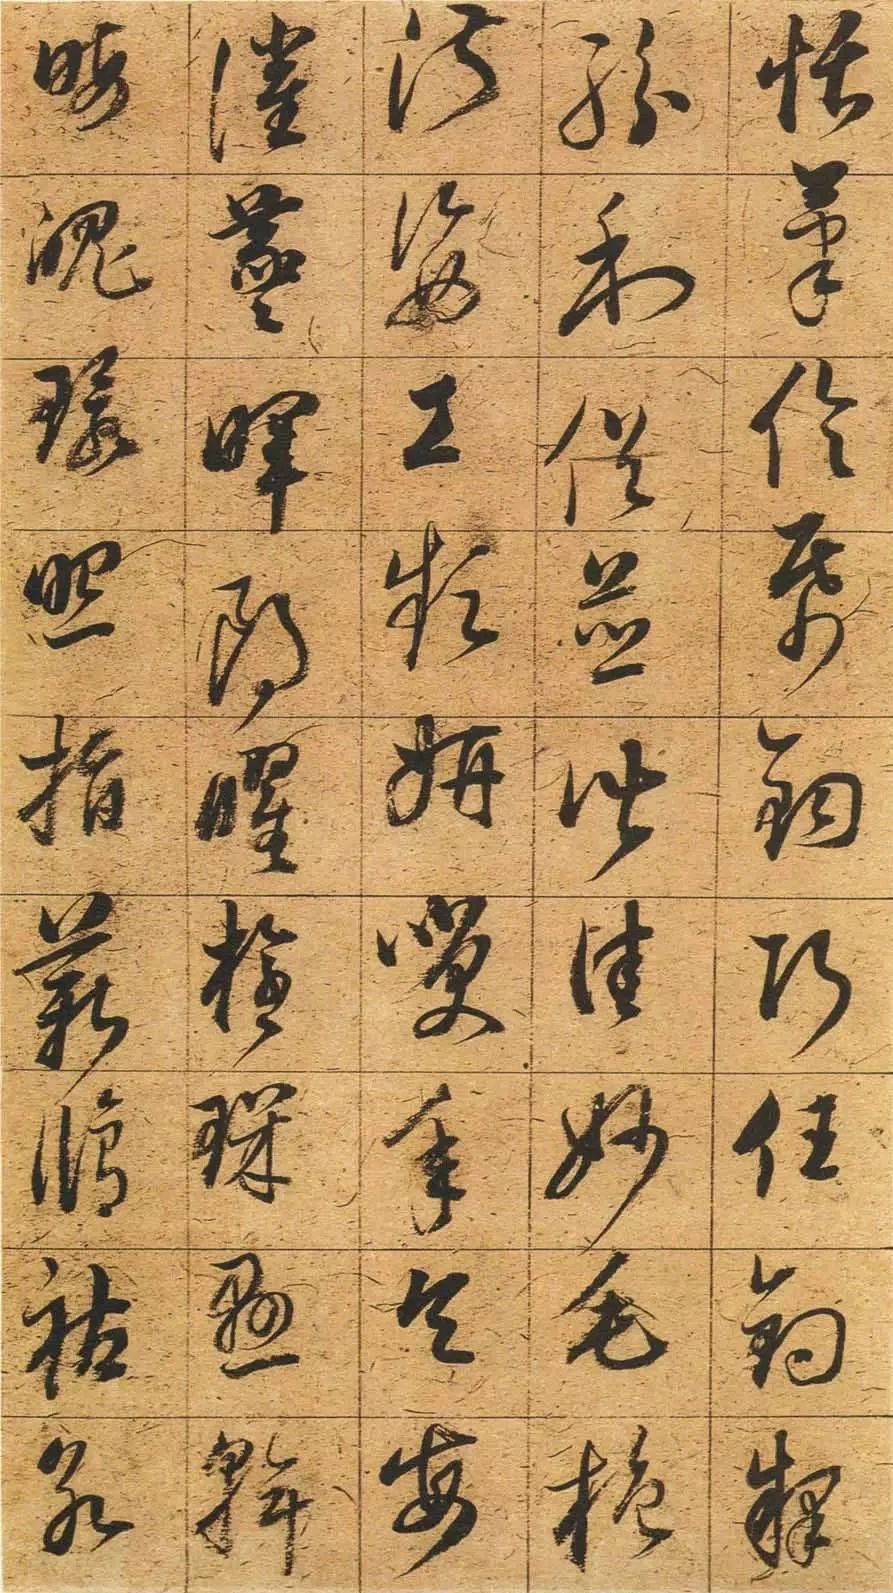 恬筆倫帋鈞巧任釣釋
紛利俗並皆佳妙毛施
淑姿工顰妍咲年矢每
催羲暉朗曜璇璣懸斡
晦魄環照指薪脩祜永